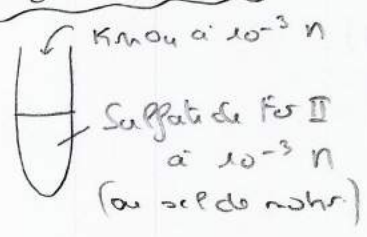 KMnO4 à 10-3 M
Sulfate de Fer II
à 10-3 M
(ou sel de mohr)